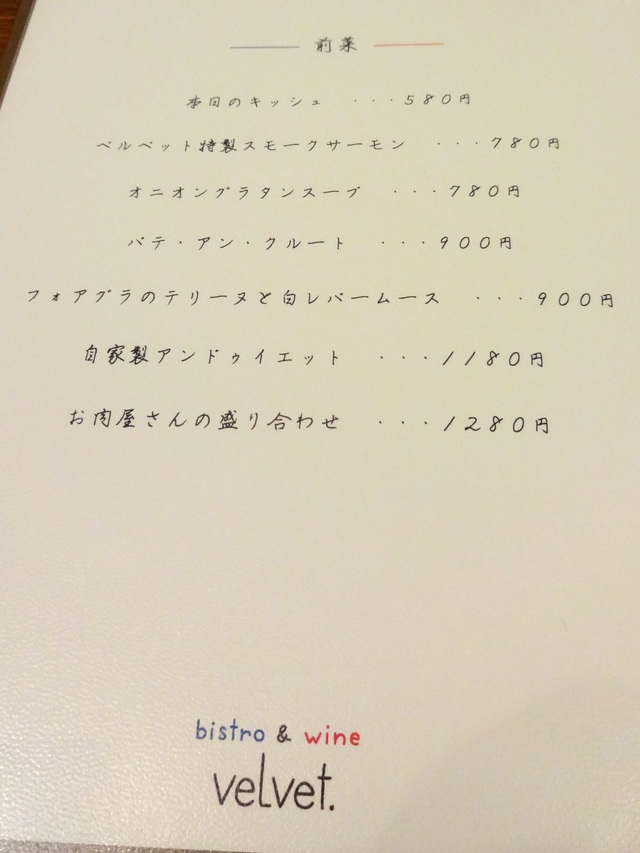 前菜
本日のキッシュ ・・・580円
ベルベット特製スモークサーモン ・・・780円
オニオングラタンスープ ・・・780円
パテ・アン・クルート ・・・900円
フォアグラのテリーヌと白レバームース ・・・900円
自家製アンドゥイエット ・・・1180円
お肉屋さんの盛り合わせ ・・・1280円
bistro & wine
velvet.